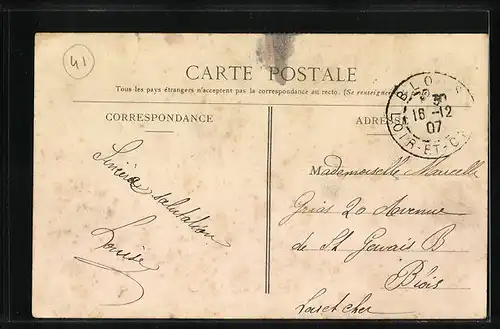 41
CARTE POSTALE
Tous les pays étrangers n'acceptent pas la correspondance au recto. (Se renseigner
CORRESPONDANCE
ADRESSE
BLO
16-12
07
LOIR-ET-C
Sincère salutation
Louise
Mademoiselle Marcelle
20 Avenue
de St Gervais B
Blois
Loir et cher